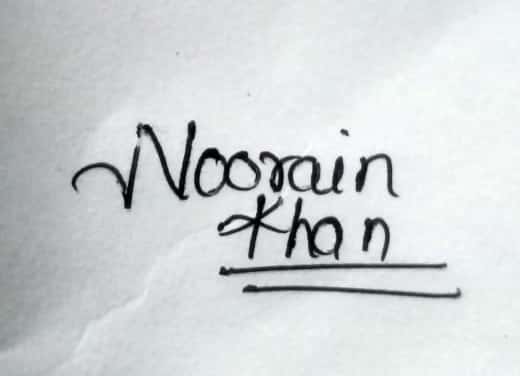 Noorain
Khan